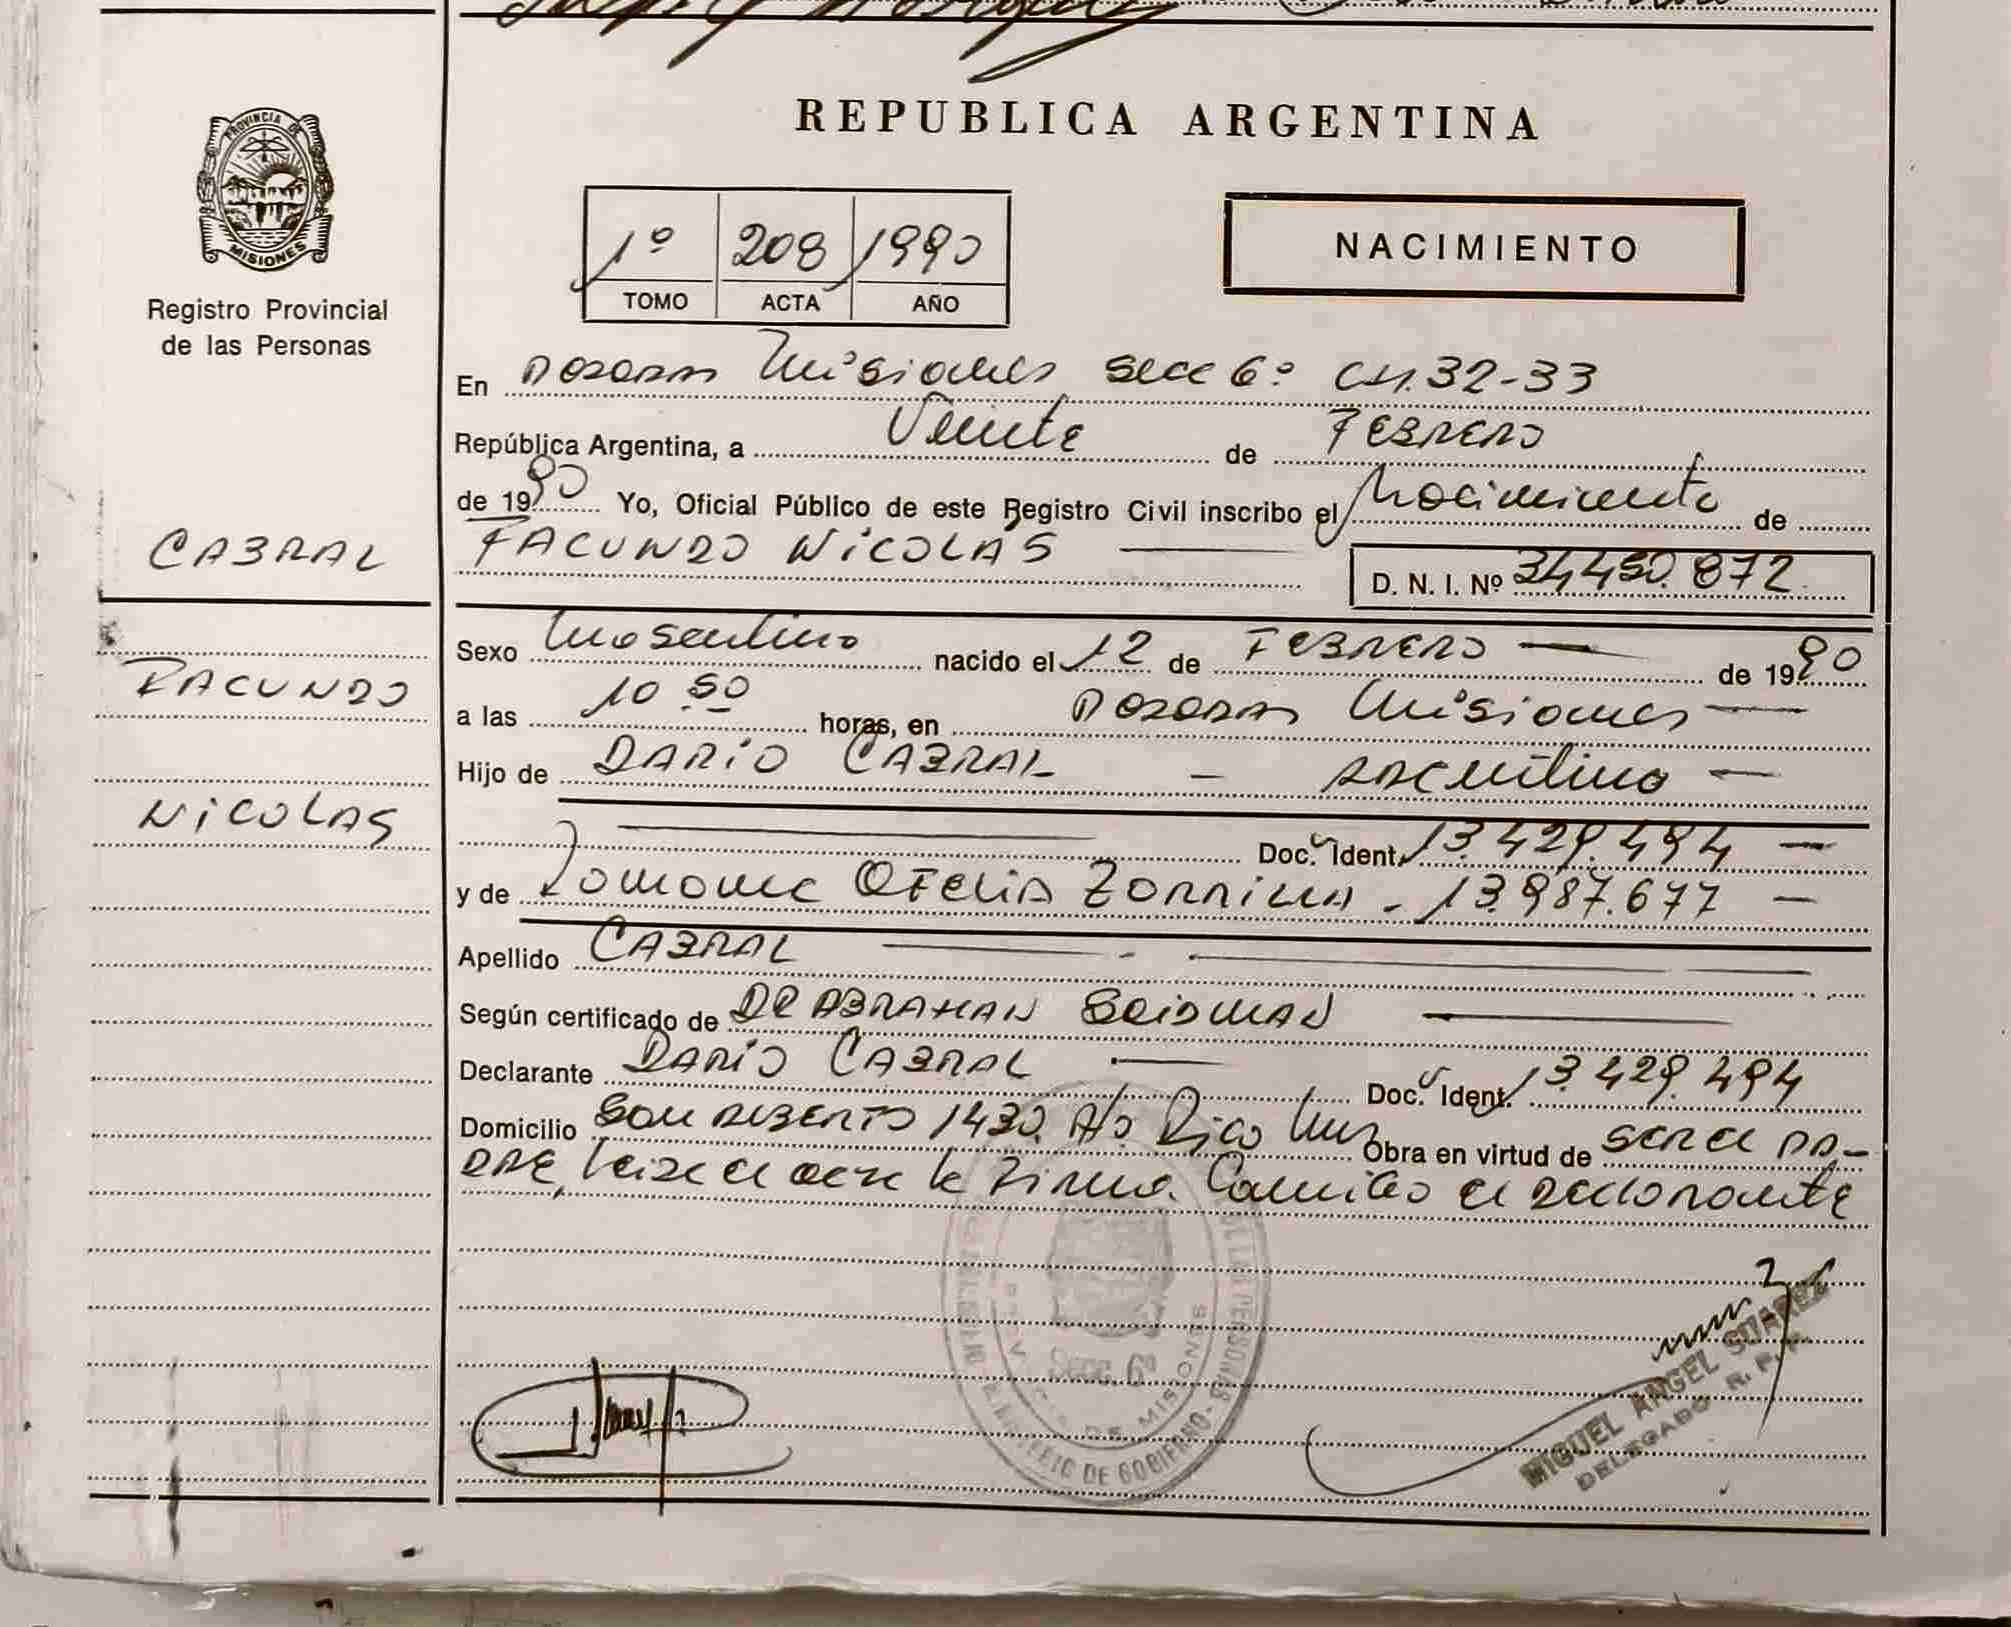 REPUBLICA ARGENTINA
PROVINCIA DE
MISIONES
Registro Provincial
de las Personas
1º 208 1990
TOMO ACTA AÑO
NACIMIENTO
En Posadas Misiones Secc 6º CH.32-33
República Argentina, a Veinte de FEBRERO
de 1990 Yo, Oficial Público de este Registro Civil inscribo el Nacimiento de
CABRAL
FACUNDO NICOLAS
D. N. I. Nº 34450.872
Sexo Masculino nacido el 12 de FEBRERO de 1990
FACUNDO
a las 10 50 horas, en Posadas Misiones
Hijo de DARIO CABRAL - Argentino
NICOLAS
Doc. Ident. 13.429.494
y de Ramona OFELIA ZORRILLA - 13.987.677
Apellido CABRAL
Según certificado de DR ABRAHAN SEIDMAN
Declarante DARIO CABRAL Doc. Ident. 13.429.494
Domicilio San Alberto 1430 Pto. Rico Mnes Obra en virtud de SER el PA-
DRE, leida el acta la Firma Conmigo el declarante
REGISTRO DE LAS PERSONAS
MINISTERIO DE GOBIERNO
PROVINCIA DE MISIONES
Secc. 6º
MIGUEL ANGEL SUAREZ
DELEGADO R. P. P.